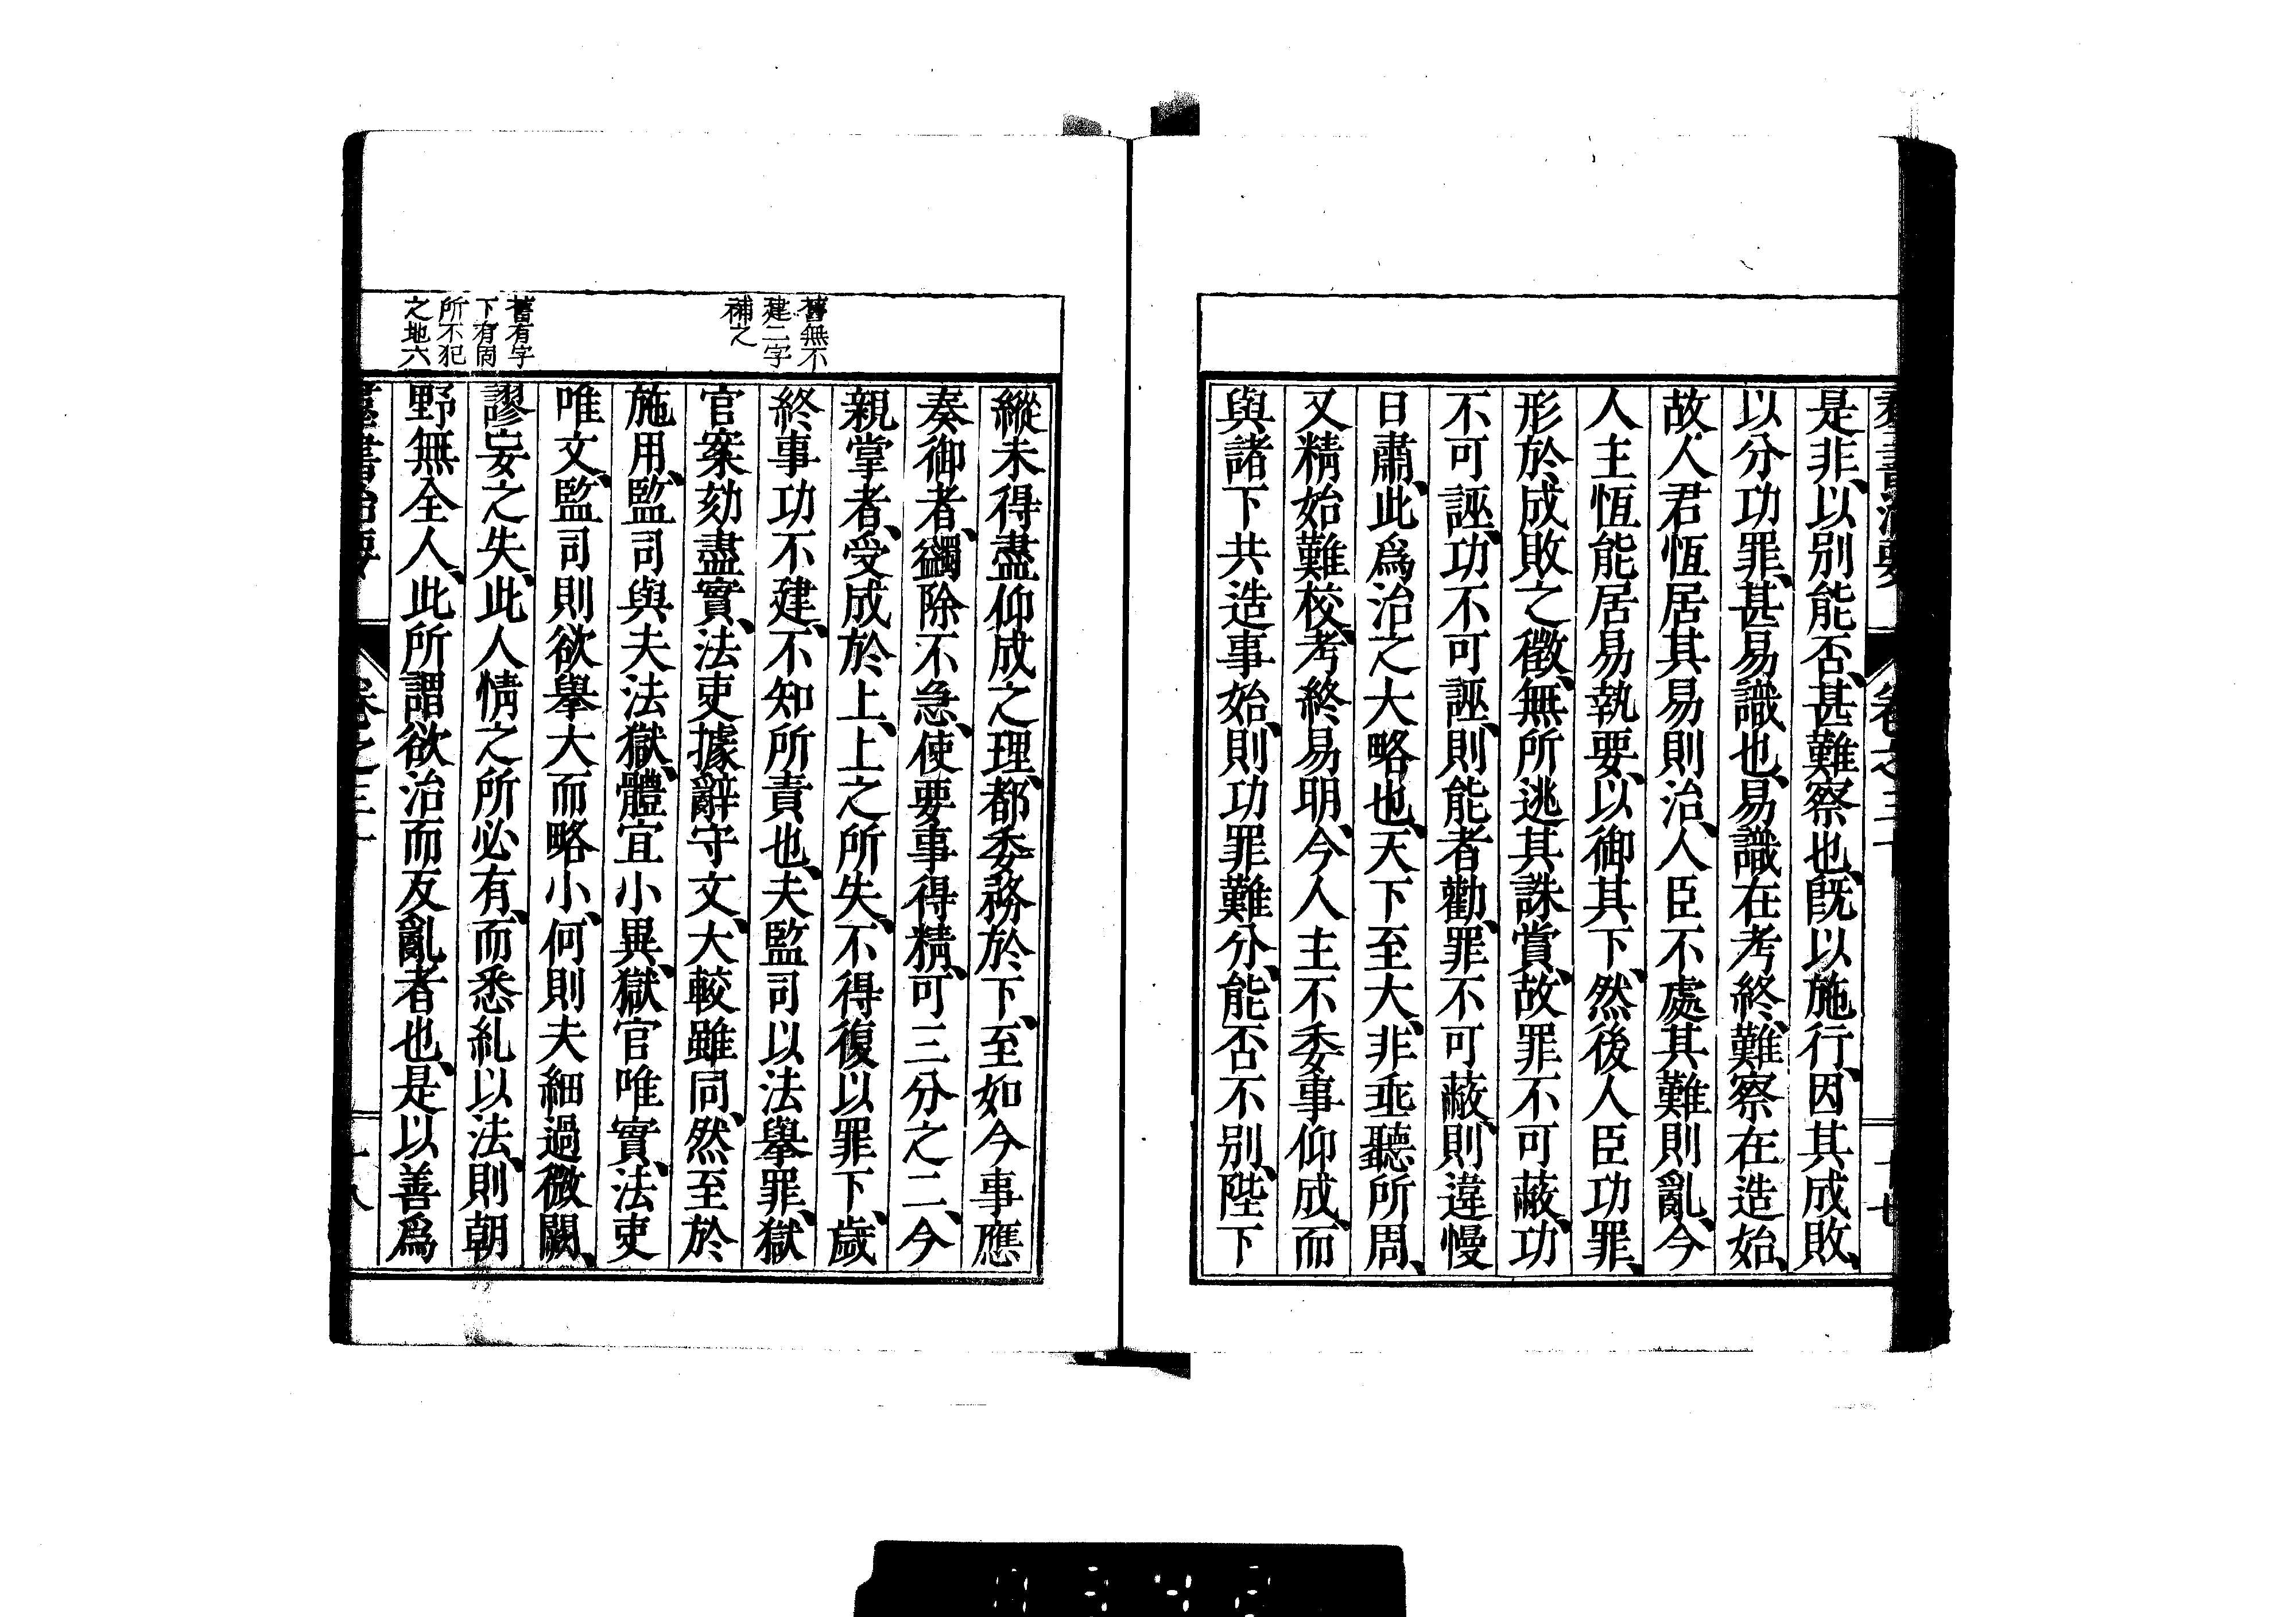 羣書治要 卷之三十 十七
是非、以別能否、甚難察也、既以施行、因其成敗、
以分功罪、甚易識也、易識在考終、難察在造始、
故人君恆居其易則治、人臣不處其難則亂、今
人主恆能居易執要、以御其下、然後人臣功罪、
形於成敗之徵、無所逃其誅賞、故罪不可蔽、功
不可誣、功不可誣、則能者勸、罪不可蔽、則違慢
日肅、此爲治之大略也、天下至大、非垂聽所周、
又精始難校、考終易明、今人主不委事仰成、而
與諸下共造事始、則功罪難分、能否不別、陛下
舊無不
建二字
補之
舊有字
下有罔
所不犯
之地六
縱未得盡仰成之理、都委務於下、至如今事應
奏御者、蠲除不急、使要事得精、可三分之二、今
親掌者、受成於上、上之所失、不得復以罪下、歲
終事功不建、不知所責也、夫監司以法舉罪、獄
官案劾盡實、法吏據辭守文、大較雖同、然至於
施用、監司與夫法獄、體宜小異、獄官唯實、法吏
唯文、監司則欲舉大而略小、何則夫細過微闕、
謬妄之失、此人情之所必有、而悉糺以法、則朝
野無全人、此所謂欲治而反亂者也、是以善爲
羣書治要 卷之三十 十八